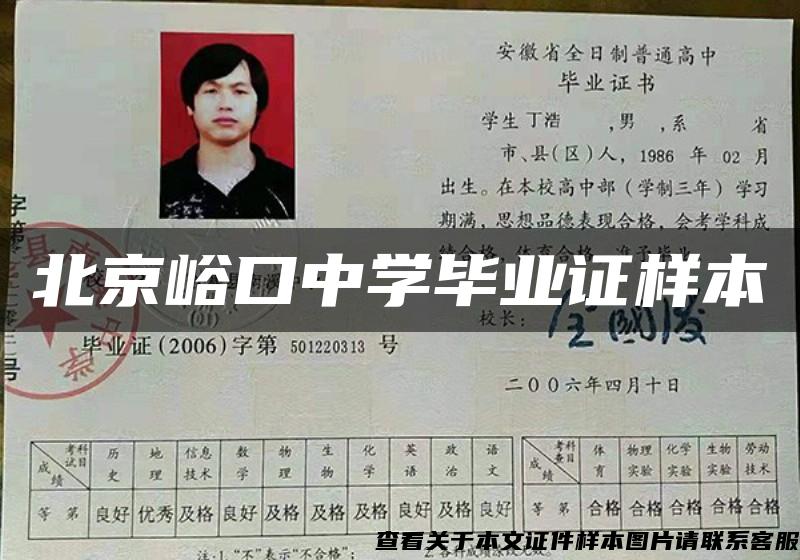 安徽省全日制普通高中
毕业证书
学生丁浩 ,男 ,系 省
市、县(区)人, 1986 年 02 月
出生。在本校高中部(学制三年)学习
期满,思想品德表现合格,会考学科成
绩合格,体育合格,准予毕业。
字第
北京峪口中学毕业证样本
校长:
毕业证(2006)字第 501220313 号
二〇〇六年四月十日
考试科目 历史 地理 信息技术 数学 物理 生物 化学 英语 政治 语文
成绩
等第 良好 优秀 及格 良好 及格 及格 及格 良好 及格 良好
考查科目 体育 物理实验 化学实验 生物实验 劳动技术
成绩
等第 合格 合格 合格 合格 合格
注:1."不"表示"不合格"; 2.各科成绩涂改无效。
查看关于本文证件样本图片请联系客服